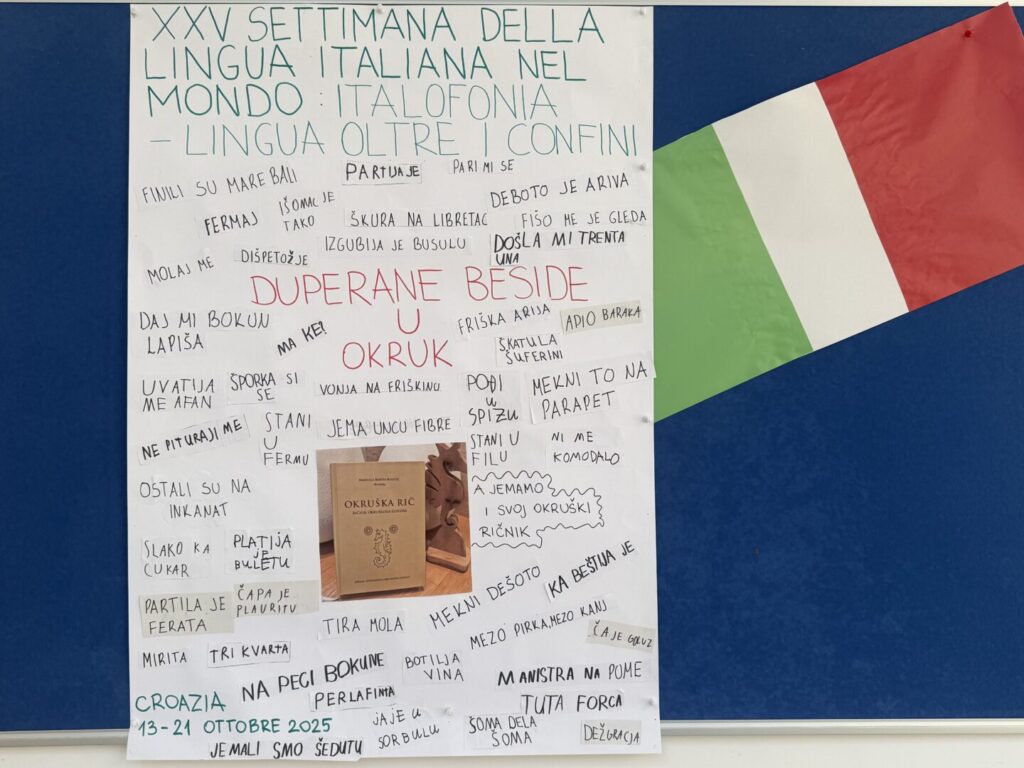 XXV SETTIMANA DELLA
LINGUA ITALIANA NEL
MONDO : ITALOFONIA
- LINGUA OLTRE I CONFINI
FINILI SU MARE BALI
PARTIJA JE
PARI MI SE
FERMAJ
IŠOMAC JE
TAKO
ŠKURA NA LIBRETAC
DEBOTO JE ARIVA
FIŠO ME JE GLEDA
MOLAJ ME
DIŠPETOŽ JE
IZGUBIJA JE BUSULU
DOŠLA MI TRENTA
UNA
DUPERANE BESIDE
U
OKRUK
DAJ MI BOKUN
LAPIŠA
MA KE!
FRIŠKA ARIJA
ADIO BARAKA
ŠKATULA
ŠUFERINI
UVATIJA
ME AFAN
ŠPORKA SI
SE
VONJA NA FRIŠKINU
POĐI
U
SPIZU
MEKNI TO NA
PARAPET
NE PITURAJ ME
STANI
U
FERMU
JEMA UNCU FIBRE
STANI U
FILU
NI ME
KOMODALO
OSTALI SU NA
INKANAT
OKRUŠKA RIČ
A JEMAMO
I SVOJ OKRUŠKI
RIČNIK
SLAKO KA
CUKAR
PLATIJA
JE
BULETU
PARTILA JE
FERATA
ČAPA JE
PLAURITU
TIRA MOLA
MEKNI DEŠOTO
KA BEŠTIJA JE
MEZO PIRKA, MEZO KANJ
MIRITA
TRI KVARTA
NA PECI BOKUNE
BOTILJA
VINA
MANISTRA NA POME
PERLAFINTA
TUTA FORCA
CROAZIA
13-21 OTTOBRE 2025
JE MALI SMO ŠEDUTU
JAJE U
SORBULU
ŠOMA DELA
ŠOMA
DEŽGRACJA